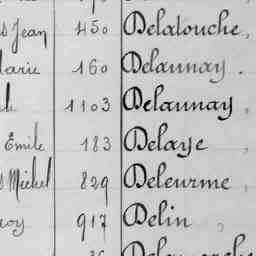 s Jean 450 Delatouche,
Marie 160 Delaunay.
1103 Delaunay,
Emile 183 Delaye,
s Michel 829 Deleurme,
917 Delin,